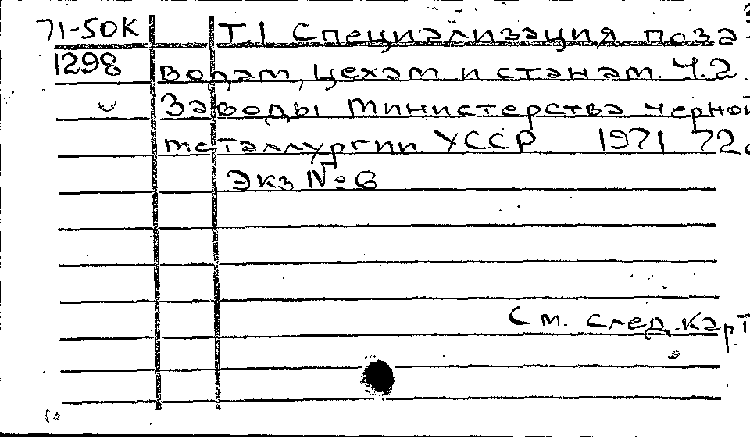 71-50К Т1 Специализация по за
1298 водам, цехам и станам. Ч.2.
Заводы Министерства черной
металлургии УССР 1971 72с
Экз №6
См. след.карт